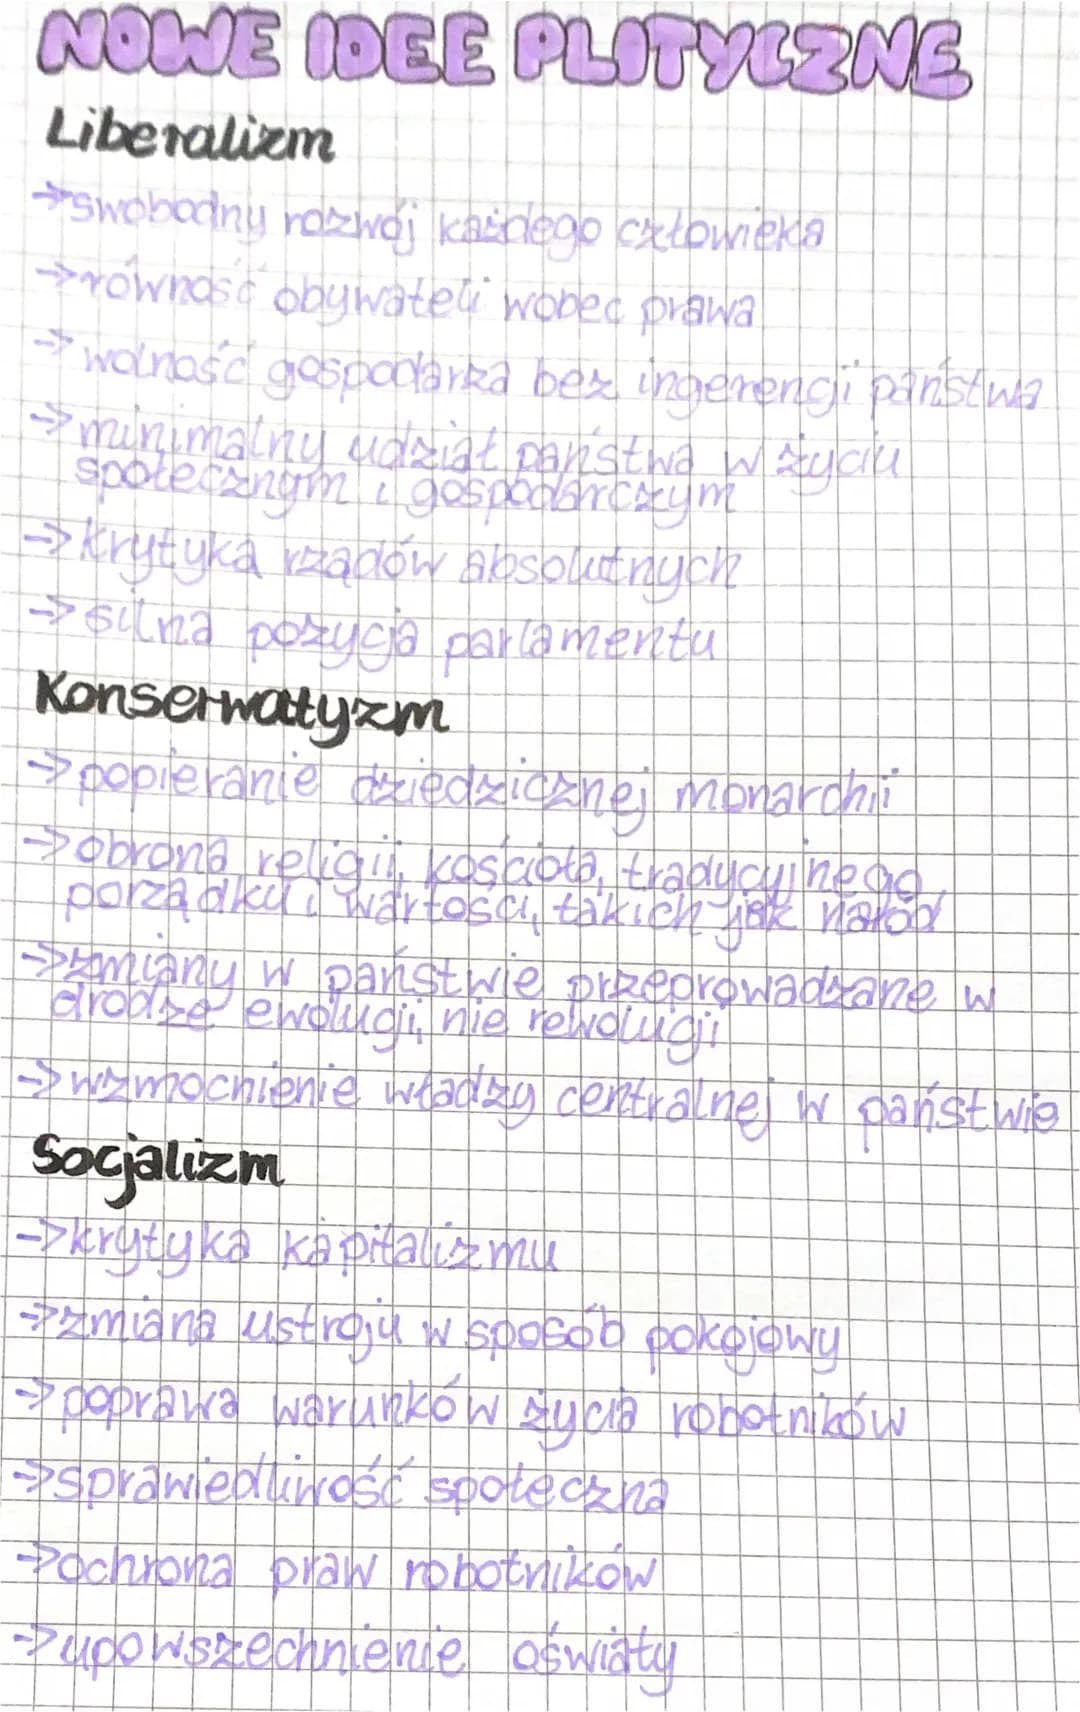 NOWE IDEE PLITYCZNE
Liberalizm
→swobodny rozwój każdego człowieka
→równość obywateli wobec prawa
→wolność gospodarka bez ingerencji państwa
→minimalny udział państwa w życiu
społecznym i gospodarczym
→krytyka rządów absolutnych
→silna pozycja parlamentu
Konserwatyzm
→popieranie dziedzicznej monarchii
→obrona religii, kościoła, tradycyjnego
porządku i wartości, takich jak naród
→zmiany w państwie przeprowadzane w
drodze ewolucji, nie rewolucji
→wzmocnienie władzy centralnej w państwie
Socjalizm
→krytyka kapitalizmu
→zmiana ustroju w sposób pokojowy
→poprawa warunków życia robotników
→sprawiedliwość społeczna
→ochrona praw robotników
→upowszechnienie oświaty